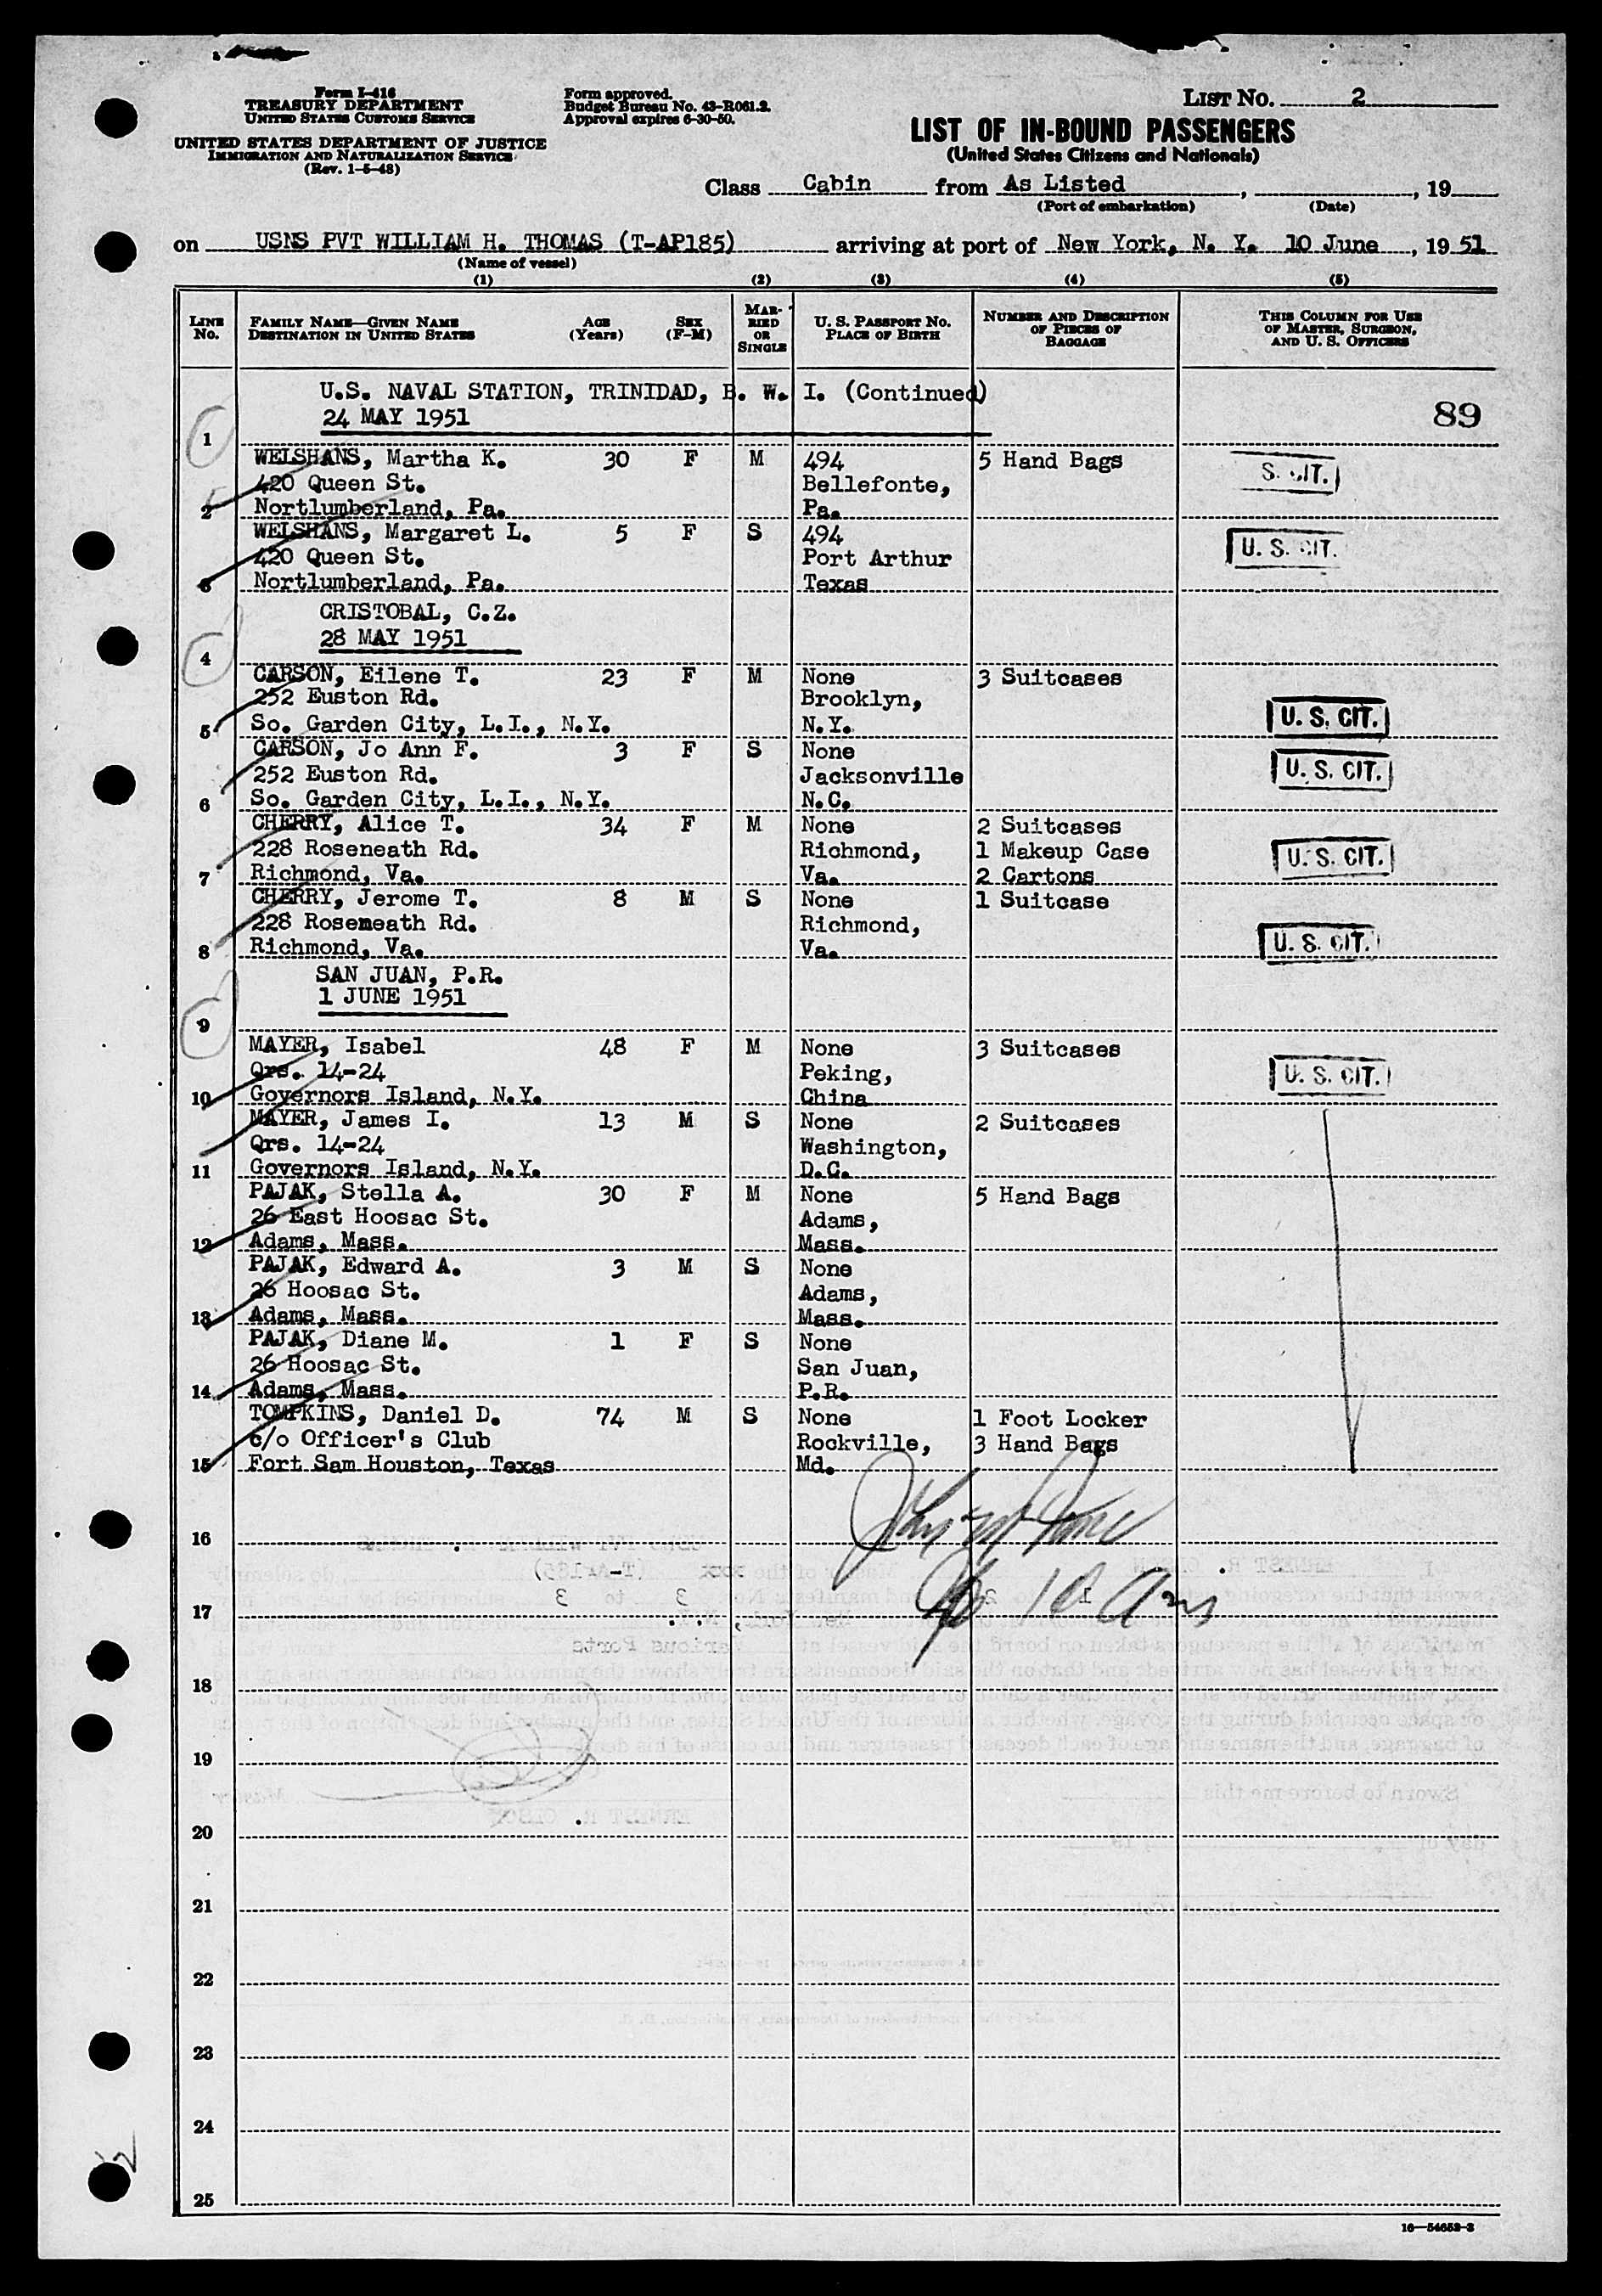 Form I-416
TREASURY DEPARTMENT
UNITED STATES CUSTOMS SERVICE
UNITED STATES DEPARTMENT OF JUSTICE
IMMIGRATION AND NATURALIZATION SERVICE
(Rev. 1-5-48)
Form approved.
Budget Bureau No. 43-R061.2.
Approval expires 6-30-50.
LIST NO. 2
LIST OF IN-BOUND PASSENGERS
(United States Citizens and Nationals)
Class Cabin from As Listed, , 19
(Port of embarkation) (Date)
on USNS PVT WILLIAM H. THOMAS (T-AP185) arriving at port of New York, N. Y. 10 June, 19 51
(Name of vessel)
(1) (2) (3) (4) (5)
LINE NO. FAMILY NAME—GIVEN NAME DESTINATION IN UNITED STATES AGE (Years) SEX (F-M) MARRIED OR SINGLE U. S. PASSPORT NO. PLACE OF BIRTH NUMBER AND DESCRIPTION OF PIECES OF BAGGAGE THIS COLUMN FOR USE OF MASTER, SURGEON, AND U. S. OFFICERS
U.S. NAVAL STATION, TRINIDAD, B. W. I. (Continued)
24 MAY 1951 89
1
WELSHANS, Martha K. 30 F M 494 5 Hand Bags
420 Queen St. Bellefonte, S. CIT.
2 Nortlumberland, Pa. Pa.
WELSHANS, Margaret L. 5 F S 494
420 Queen St. Port Arthur U. S. CIT.
3 Nortlumberland, Pa. Texas
CRISTOBAL, C.Z.
28 MAY 1951
4
CARSON, Eilene T. 23 F M None 3 Suitcases
252 Euston Rd. Brooklyn,
5 So. Garden City, L.I., N.Y. N.Y. U. S. CIT.
CARSON, Jo Ann F. 3 F S None
252 Euston Rd. Jacksonville U. S. CIT.
6 So. Garden City, L.I., N.Y. N.C.
CHERRY, Alice T. 34 F M None 2 Suitcases
228 Roseneath Rd. Richmond, 1 Makeup Case U. S. CIT.
7 Richmond, Va. Va. 2 Cartons
CHERRY, Jerome T. 8 M S None 1 Suitcase
228 Roseneath Rd. Richmond,
8 Richmond, Va. Va. U. S. CIT.
SAN JUAN, P.R.
1 JUNE 1951
9
MAYER, Isabel 48 F M None 3 Suitcases
Qrs. 14-24 Peking, U. S. CIT.
10 Governors Island, N.Y. China
MAYER, James I. 13 M S None 2 Suitcases
Qrs. 14-24 Washington,
11 Governors Island, N.Y. D.C.
PAJAK, Stella A. 30 F M None 5 Hand Bags
26 East Hoosac St. Adams,
12 Adams, Mass. Mass.
PAJAK, Edward A. 3 M S None
26 Hoosac St. Adams,
13 Adams, Mass. Mass.
PAJAK, Diane M. 1 F S None
26 Hoosac St. San Juan,
14 Adams, Mass. P.R.
TOMPKINS, Daniel D. 74 M S None 1 Foot Locker
c/o Officer's Club Rockville, 3 Hand Bags
15 Fort Sam Houston, Texas Md.
16
17
18
19
20
21
22
23
24
25
16—54652-3